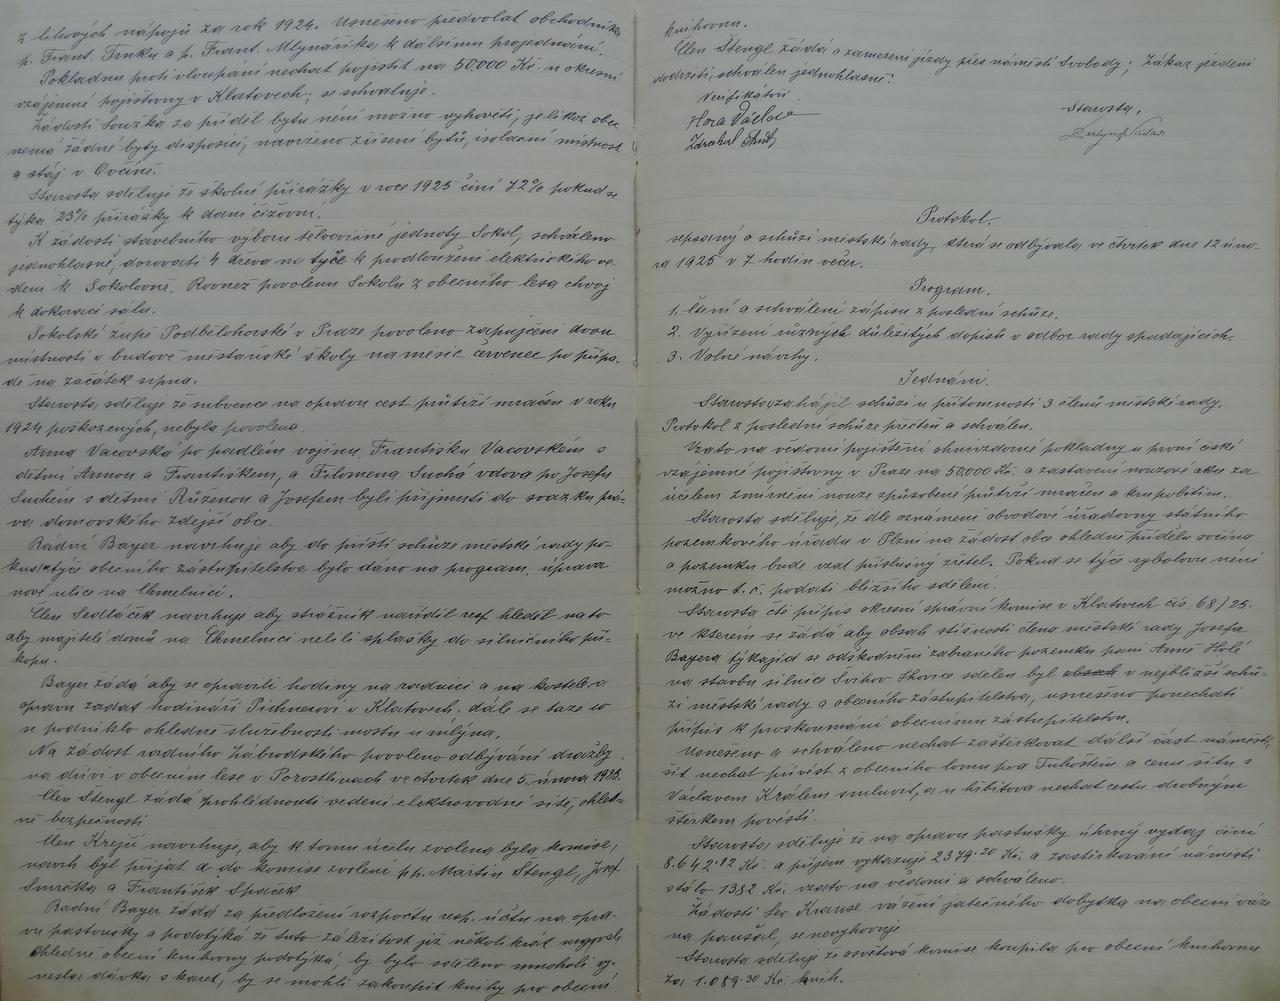 z lihových nápojů za rok 1924. Usnešeno předvolat obchodníka
p. Frant. Trnku a p. Frant. Mlynáříka k dalšímu projednání.
Pokladnu proti vloupání nechat pojistit na 50.000 Kč. u okresní
vzájemné pojišťovny v Klatovech; se schvaluje.
Žádosti Součka za příděl bytu není možno vyhověti, jelikož obec
nemá žádné byty disposici, navrženo zřízení bytů, isolační místnost
a stáj v Ovčíně.
Starosta sděluje že školní přirážky v roce 1925 činí 72% pokud se
týká 23% přirážky k dani činžovní.
K žádosti stavebního výboru tělocvičné jednoty Sokol, schváleno
jednohlasně, darovati 4 dřeva na tyče k prodloužení elektrického ve-
dení k Sokolovně. Rovněz povoleno Sokolu z obecního lesa chvoj
k dekoraci sálu.
Sokolské župě Podbělohorské v Praze povoleno zapujčení dvou
místností v budově měšťanské školy na měsíc červenec po přípa-
dě na začátek srpna.
Starosta sděluje že subvence na opravu cest průtrží mračen v roku
1924 poškozených, nebyla povolena.
Anna Vacovská po padlém vojínu Františku Vacovském s
dětmi Annou a Františkem, a Filomena Suchá vdova po Josefu
Suchém s dětmi Růženou a Josefem byli přijmuti do svazku prá-
va domovského zdejší obce.
Radní Bayer navrhuje aby do příští schůze městské rady po-
kud se týče obecního zastupitelstva bylo dáno na program, úprava
nové ulice na Chmelnici.
Člen Sedláček navrhuje aby strážník nařídil resp. hleděl na to
aby majitelé domů na Chmelnici nelili splašky do silničního pří-
kopu.
Bayer žádá aby se opravili hodiny na radnici a na kostele a
opravu zadat hodináři Pichnerovi v Klatovech. dále se táže co
se podniklo ohledně služebnosti mostu u mlýna.
Na žádost radního Zábrodského povoleno odbývání dražby
na dříví v obecním lese v Porostlinách ve čtvrtek dne 5. února 1925.
Člen Stengl žádá prohlédnouti vedení elektrovodné sítě, ohled-
ně bezpečnosti
Člen Krejčí navrhuje, aby k tomu účelu zvolena byla komise,
návrh byl přijat a do komise zvoleni p.p. Martin Stengl, Josef
Smrčka a František Spaček
Radní Bayer žádá za předložení rozpočtu resp. účtu na opra-
vu pastoušky a podotýká že tuto záležitost již několikrát urgoval.
Ohledně obecní knihovny podotýká, by bylo sděleno mnoholi vy-
nesla dávka s karet, by se mohli zakoupit knihy pro obecní
knihovnu.
Člen Stengl žádá o zamezení jízdy přes náměstí Svobody; zákaz ježdění
dodržeti, schválen jednohlasně.
Verifikátoři
Hora Václav
Starosta.
Protokol.
sepsaný o schůzi městské rady, která se odbývala ve čtvrtek dne 12 úno-
ra 1925 v 7 hodin večer.
Program.
1. Čtení a schválení zápisu z poslední schůze.
2. Vyřízení různých důležitých dopisů v odbor rady spadajících.
3. Volné návrhy.
Jednání.
Starosta zahájil schůzi u přítomnosti 3 členů městské rady.
Protokol z poslední schůze přečten a schválen.
Vzato na vědomí pojištění ohnivzdorné pokladny u první české
vzájemné pojišťovny v Praze na 50.000 Kč. a zastavení nouzové akce za
účelem zmírnění nouze způsobené průtrží mračen a krupobitím.
Starosta sděluje, že dle oznámení obvodové úřadovny státního
pozemkového úřadu v Plzni na žádost obce ohledně přídělu ovčína
a pozemku bude vzat příslušný zřetel. Pokud se týče rybolovu není
možno t. č. podati bližšího sdělení.
Starosta čte přípis okresní správní komise v Klatovech čís. 68/25.
ve kterém se žádá aby obsah stížnosti člena městské rady Josefa
Bayera týkající se odškodnění zabraného pozemku paní Anně Holé
na stavbu silnice Švihov Lhovice sdělen byl obsah v nejbližší schů-
zi městské rady a obecního zástupitelstva, usnešeno ponechati
přípis k prozkoumání obecnímu zástupitelstvu.
Usnešeno a schváleno nechat zaštěrkovat další část náměstí,
šít nechat přivést z obecního lomu pod Tuhoštěm a cenu sítu s
Václavem Králem smluvit, a u hřbitova nechat cestu drobným
štěrkem pověsti.
Starosta sděluje že na opravu pastoušky úhrný vydaj činí
8.642.12 Kč. a příjem vykazuje 2379.20 Kč. a zaštěrkování náměstí
stálo 1382 Kč. vzato na vědomí a schváleno.
Žádosti Leo Krause vážení jatečného dobytka na obecní váze
na paušál, se nevyhovuje
Starosta sděluje že osvětová komise koupila pro obecní knihovnu
za 1.089.30 Kč. knih.